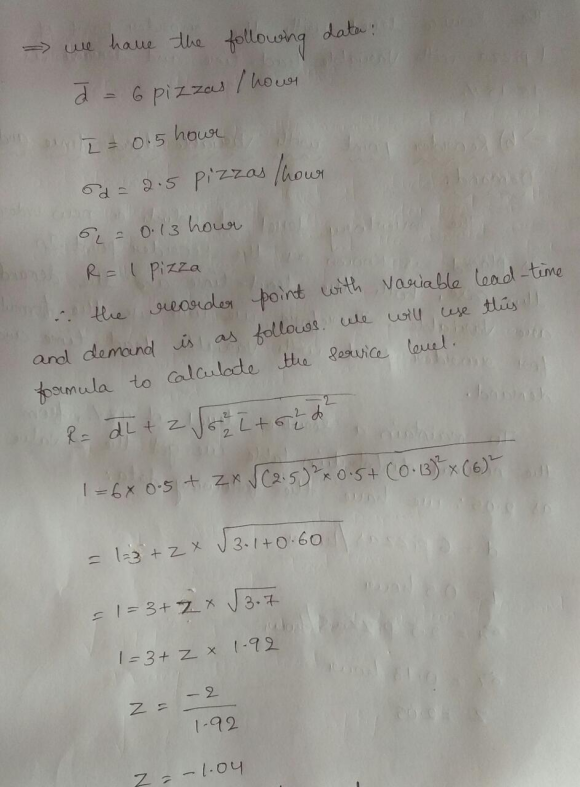 ⇒ we have the following data:
d̄ = 6 pizzas / hour
L̄ = 0.5 hour
σd = 2.5 pizzas / hour
σL = 0.13 hour
R = 1 pizza
∴ the reorder point with variable lead-time
and demand is as follows. we will use this
formula to calculate the service level.
R = d̄L̄ + Z√(σ₂² L̄ + σL² d̄²)
1 = 6 × 0.5 + Z × √((2.5)² × 0.5 + (0.13)² × (6)²)
= 1=3 + Z × √(3.1 + 0.60)
= 1 = 3 + Z × √3.7
1 = 3 + Z × 1.92
Z = -2 / 1.92
Z = -1.04